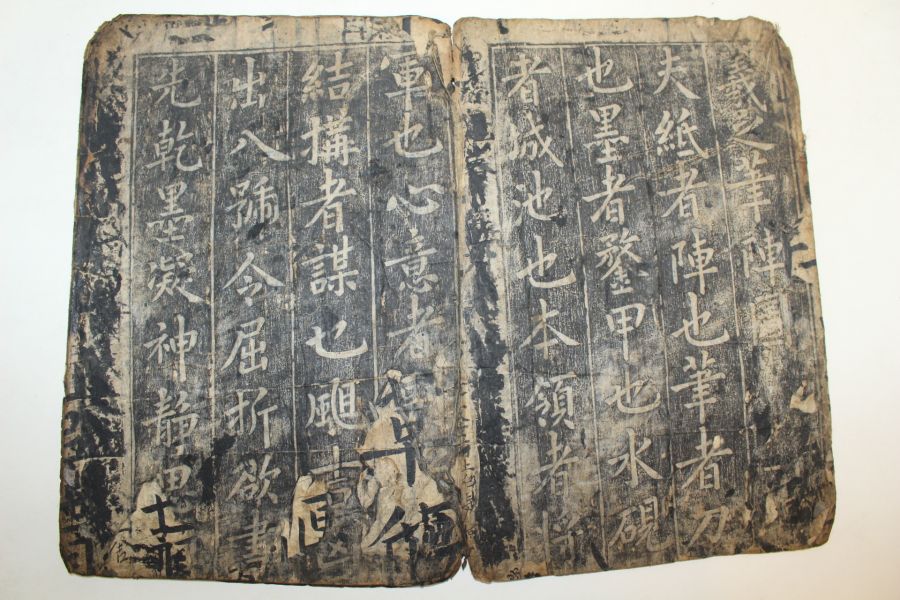 羲之筆陣圖
夫紙者陣也筆者刀
也墨者鍪甲也水硯
者城池也本領者將
軍也心意者
結搆者謀也颺
出入號令屈折欲書
先乾墨凝神靜思